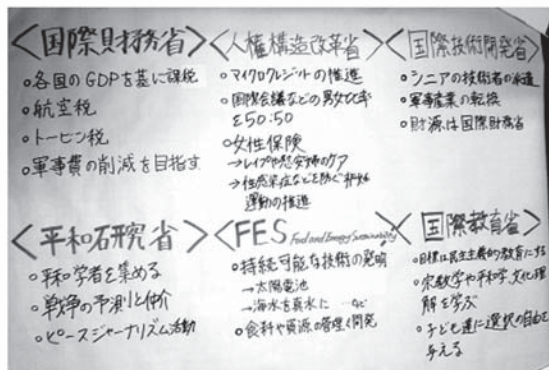 <国際財務省>
○各国のGDPを基に課税
○航空税
○トービン税
○軍事費の削減を目指す
<人権構造改革省>
○マイクロクレジットの推進
○国際会議などの男女比率
を50:50
○女性保険
→レイプや慰安婦のケア
→性感染症などを防ぐ
運動の推進
<国際技術開発省>
○シニアの技術者の派遣
○軍事産業の転換
○財源は国際財務省
<平和研究省>
○平和学者を集める
○戦争の予測と仲介
○ピースジャーナリズム活動
<FES Food and Energy Sustainability>
○持続可能な技術の発明
→太陽電池
→海水を真水に…など
○食料や資源の管理と開発
<国際教育省>
○目標は民主主義的教育にする
○宗教学や平和学、文化理
解を学ぶ
○子ども達に選択の自由を
与える